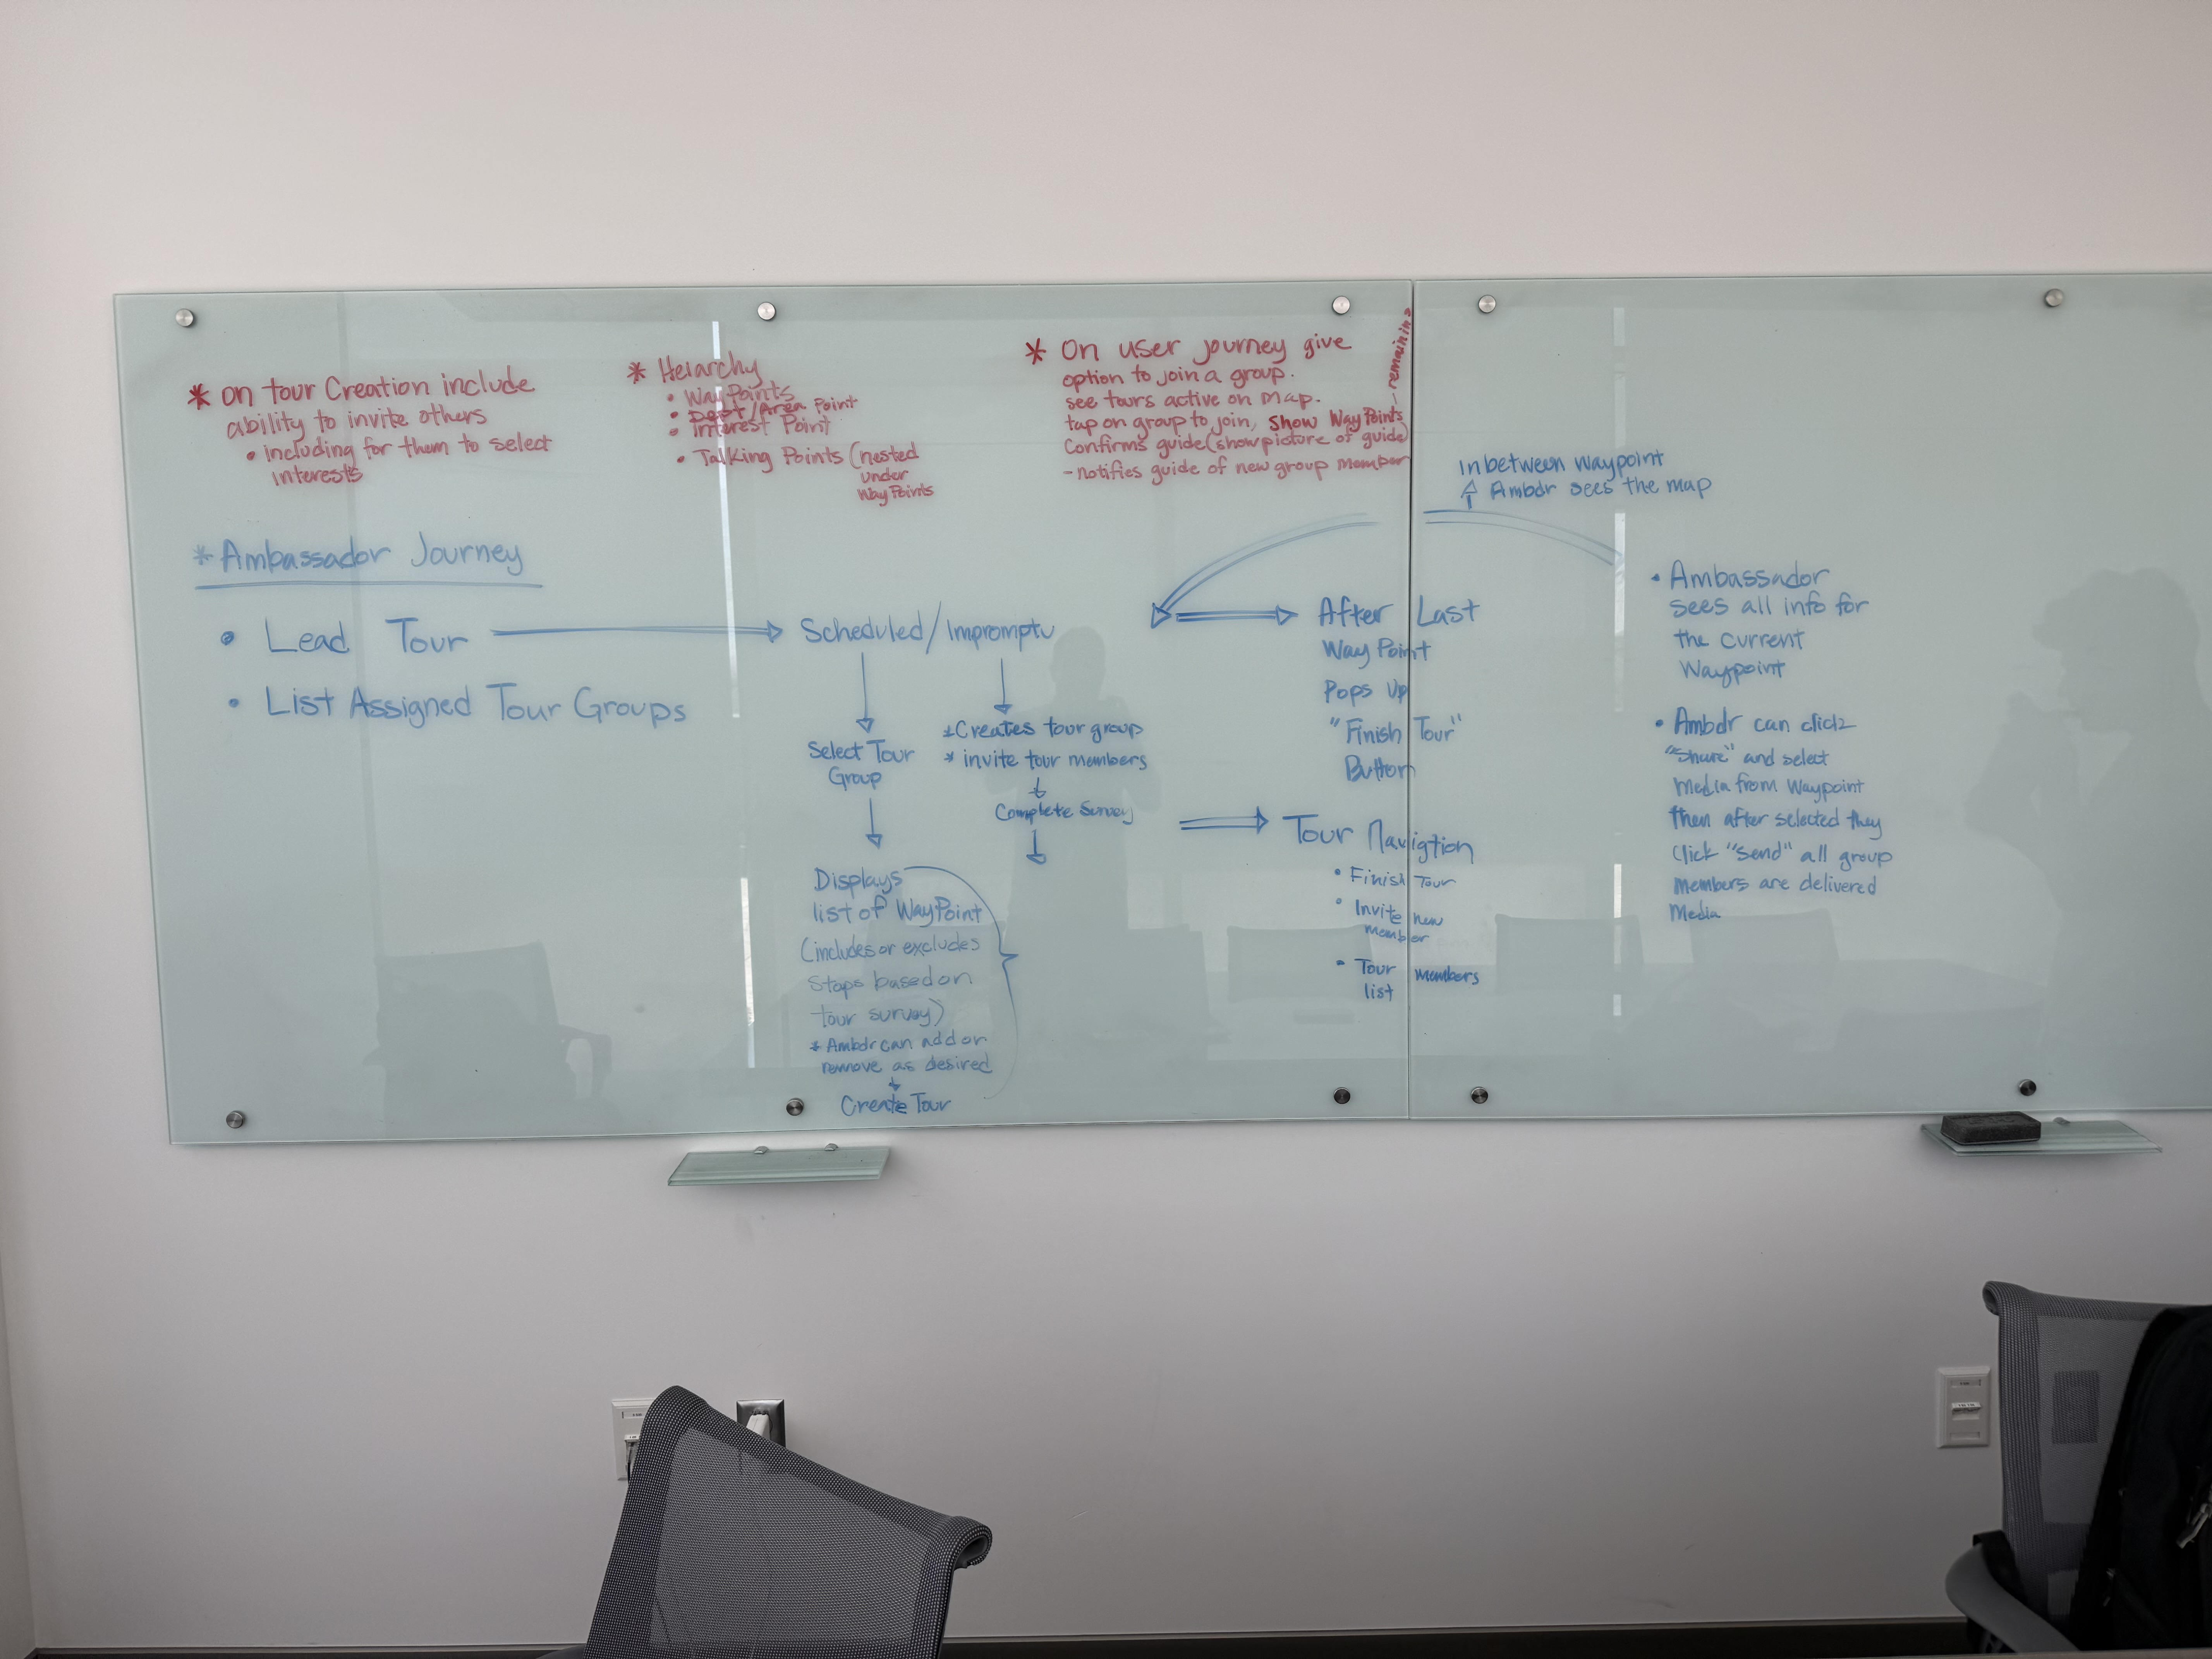 * On tour Creation include
ability to invite others
• Including for them to select
interests
* Heirarchy
• WayPoints
• Dept/Area Point
• Interest Point
• Talking Points (nested
under
WayPoints
* On user journey give
option to join a group.
see tours active on map.
tap on group to join, Show WayPoints - remaining
Confirms guide (show picture of guide)
- notifies guide of new group member
* Ambassador Journey
• Lead Tour
• List Assigned Tour Groups
Scheduled/Impromptu
Select Tour
Group
Displays
list of WayPoint
(includes or excludes
Stops based on
tour survey)
* Ambdr can add or
remove as desired
Create Tour
* Creates tour group
* invite tour members
Complete Survey
After Last
WayPoint
Pops Up
"Finish Tour"
Button
Tour Navigtion
• Finish Tour
• Invite new
member
• Tour members
list
In between waypoint
Ambdr sees the map
• Ambassador
sees all info for
the current
Waypoint
• Ambdr can click
"Share" and select
Media from Waypoint
then after selected they
Click "Send" all group
Members are delivered
Media